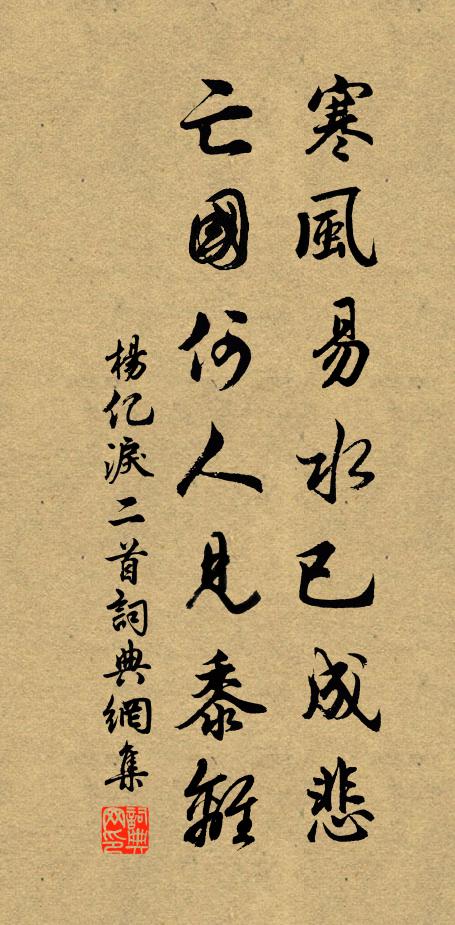 寒風易水已成悲
亡國何人見黍離
楊亿淚二首詞典網集
詞典网印